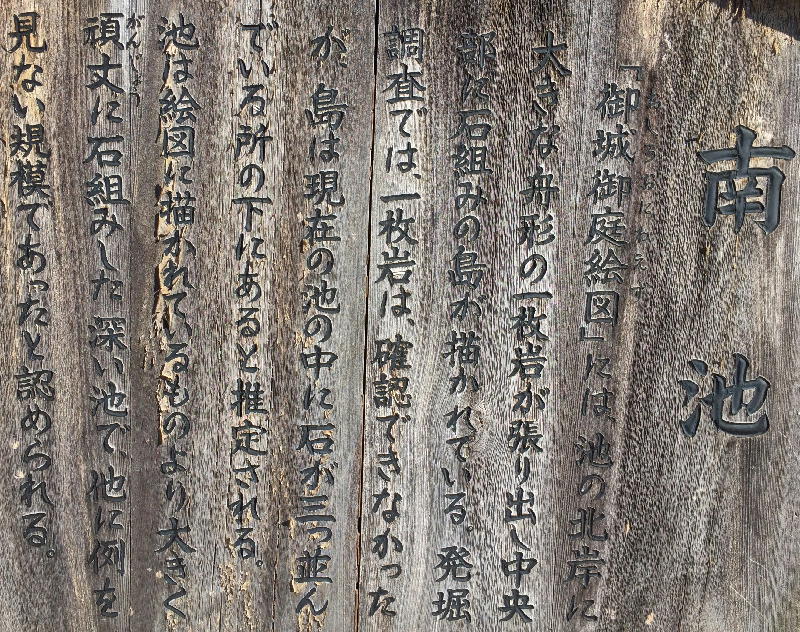 南池
「御城御庭絵図」には、池の北岸に
大きな舟形の一枚岩が張り出し中央
部に石組みの島が描かれている。発掘
調査では、一枚岩は、確認できなかった
が、島は現在の池の中に石が三つ並ん
でいる所の下にあると推定される。
池は絵図に描かれているものより大きく
頑丈に石組みした深い池で、他に例を
がんじょう
見ない規模であったと認められる。